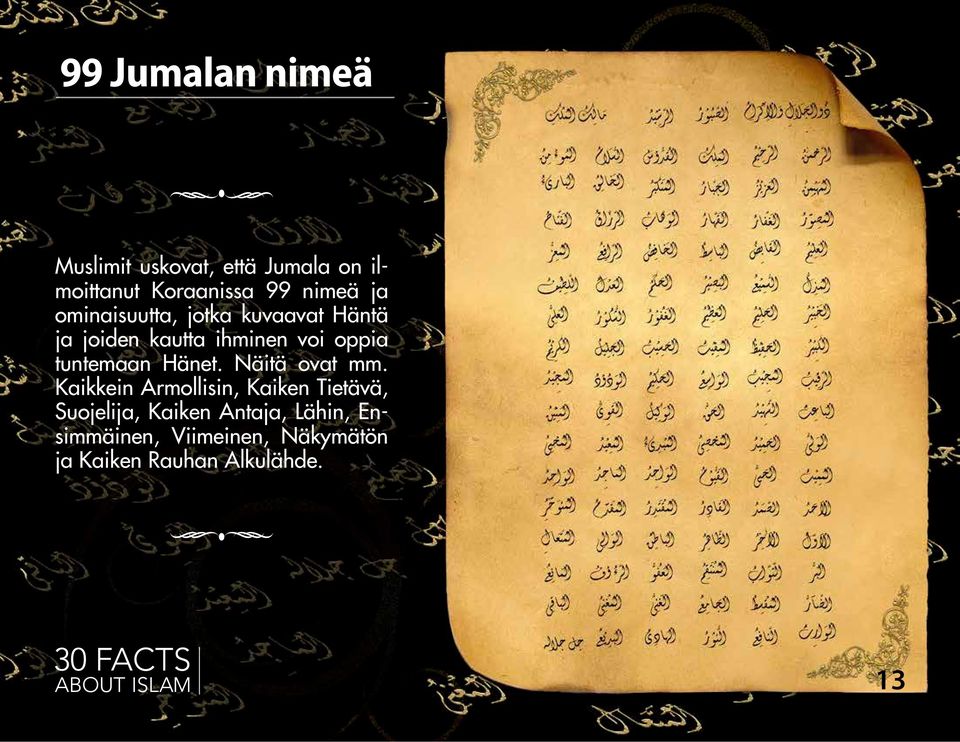 99 Jumalan nimeä
Muslimit uskovat, että Jumala on il-
moittanut Koraanissa 99 nimeä ja
ominaisuutta, jotka kuvaavat Häntä
ja joiden kautta ihminen voi oppia
tuntemaan Hänet. Näitä ovat mm.
Kaikkein Armollisin, Kaiken Tietävä,
Suojelija, Kaiken Antaja, Lähin, En-
simmäinen, Viimeinen, Näkymätön
ja Kaiken Rauhan Alkulähde.
ذو الجلال والإكرام الصبور الرشيد مالك الملك
الرحمن الرحيم الملك القدوس السلام المؤمن
المهيمن العزيز الجبار المتكبر الخالق البارئ
المصور الغفار القهار الوهاب الرزاق الفتاح
العليم القابض الباسط الخافض الرافع المعز
المذل السميع البصير الحكم العدل اللطيف
الخبير الحليم العظيم الغفور الشكور العلي
الكبير الحفيظ المقيت الحسيب الجليل الكريم
الرقيب المجيب الواسع الحكيم الودود المجيد
الباعث الشهيد الحق الوكيل القوي المتين
الولي الحميد المحصي المبدئ المعيد المحيي
المميت الحي القيوم الواجد الماجد الواحد
الأحد الصمد القادر المقتدر المقدم المؤخر
الأول الآخر الظاهر الباطن الوالي المتعال
البر التواب المنتقم العفو الرءوف المانع
الضار المقسط الجامع الغني المغني الباقي
الوارث النافع النور الهادي البديع جل جلاله
30 FACTS
ABOUT ISLAM
13